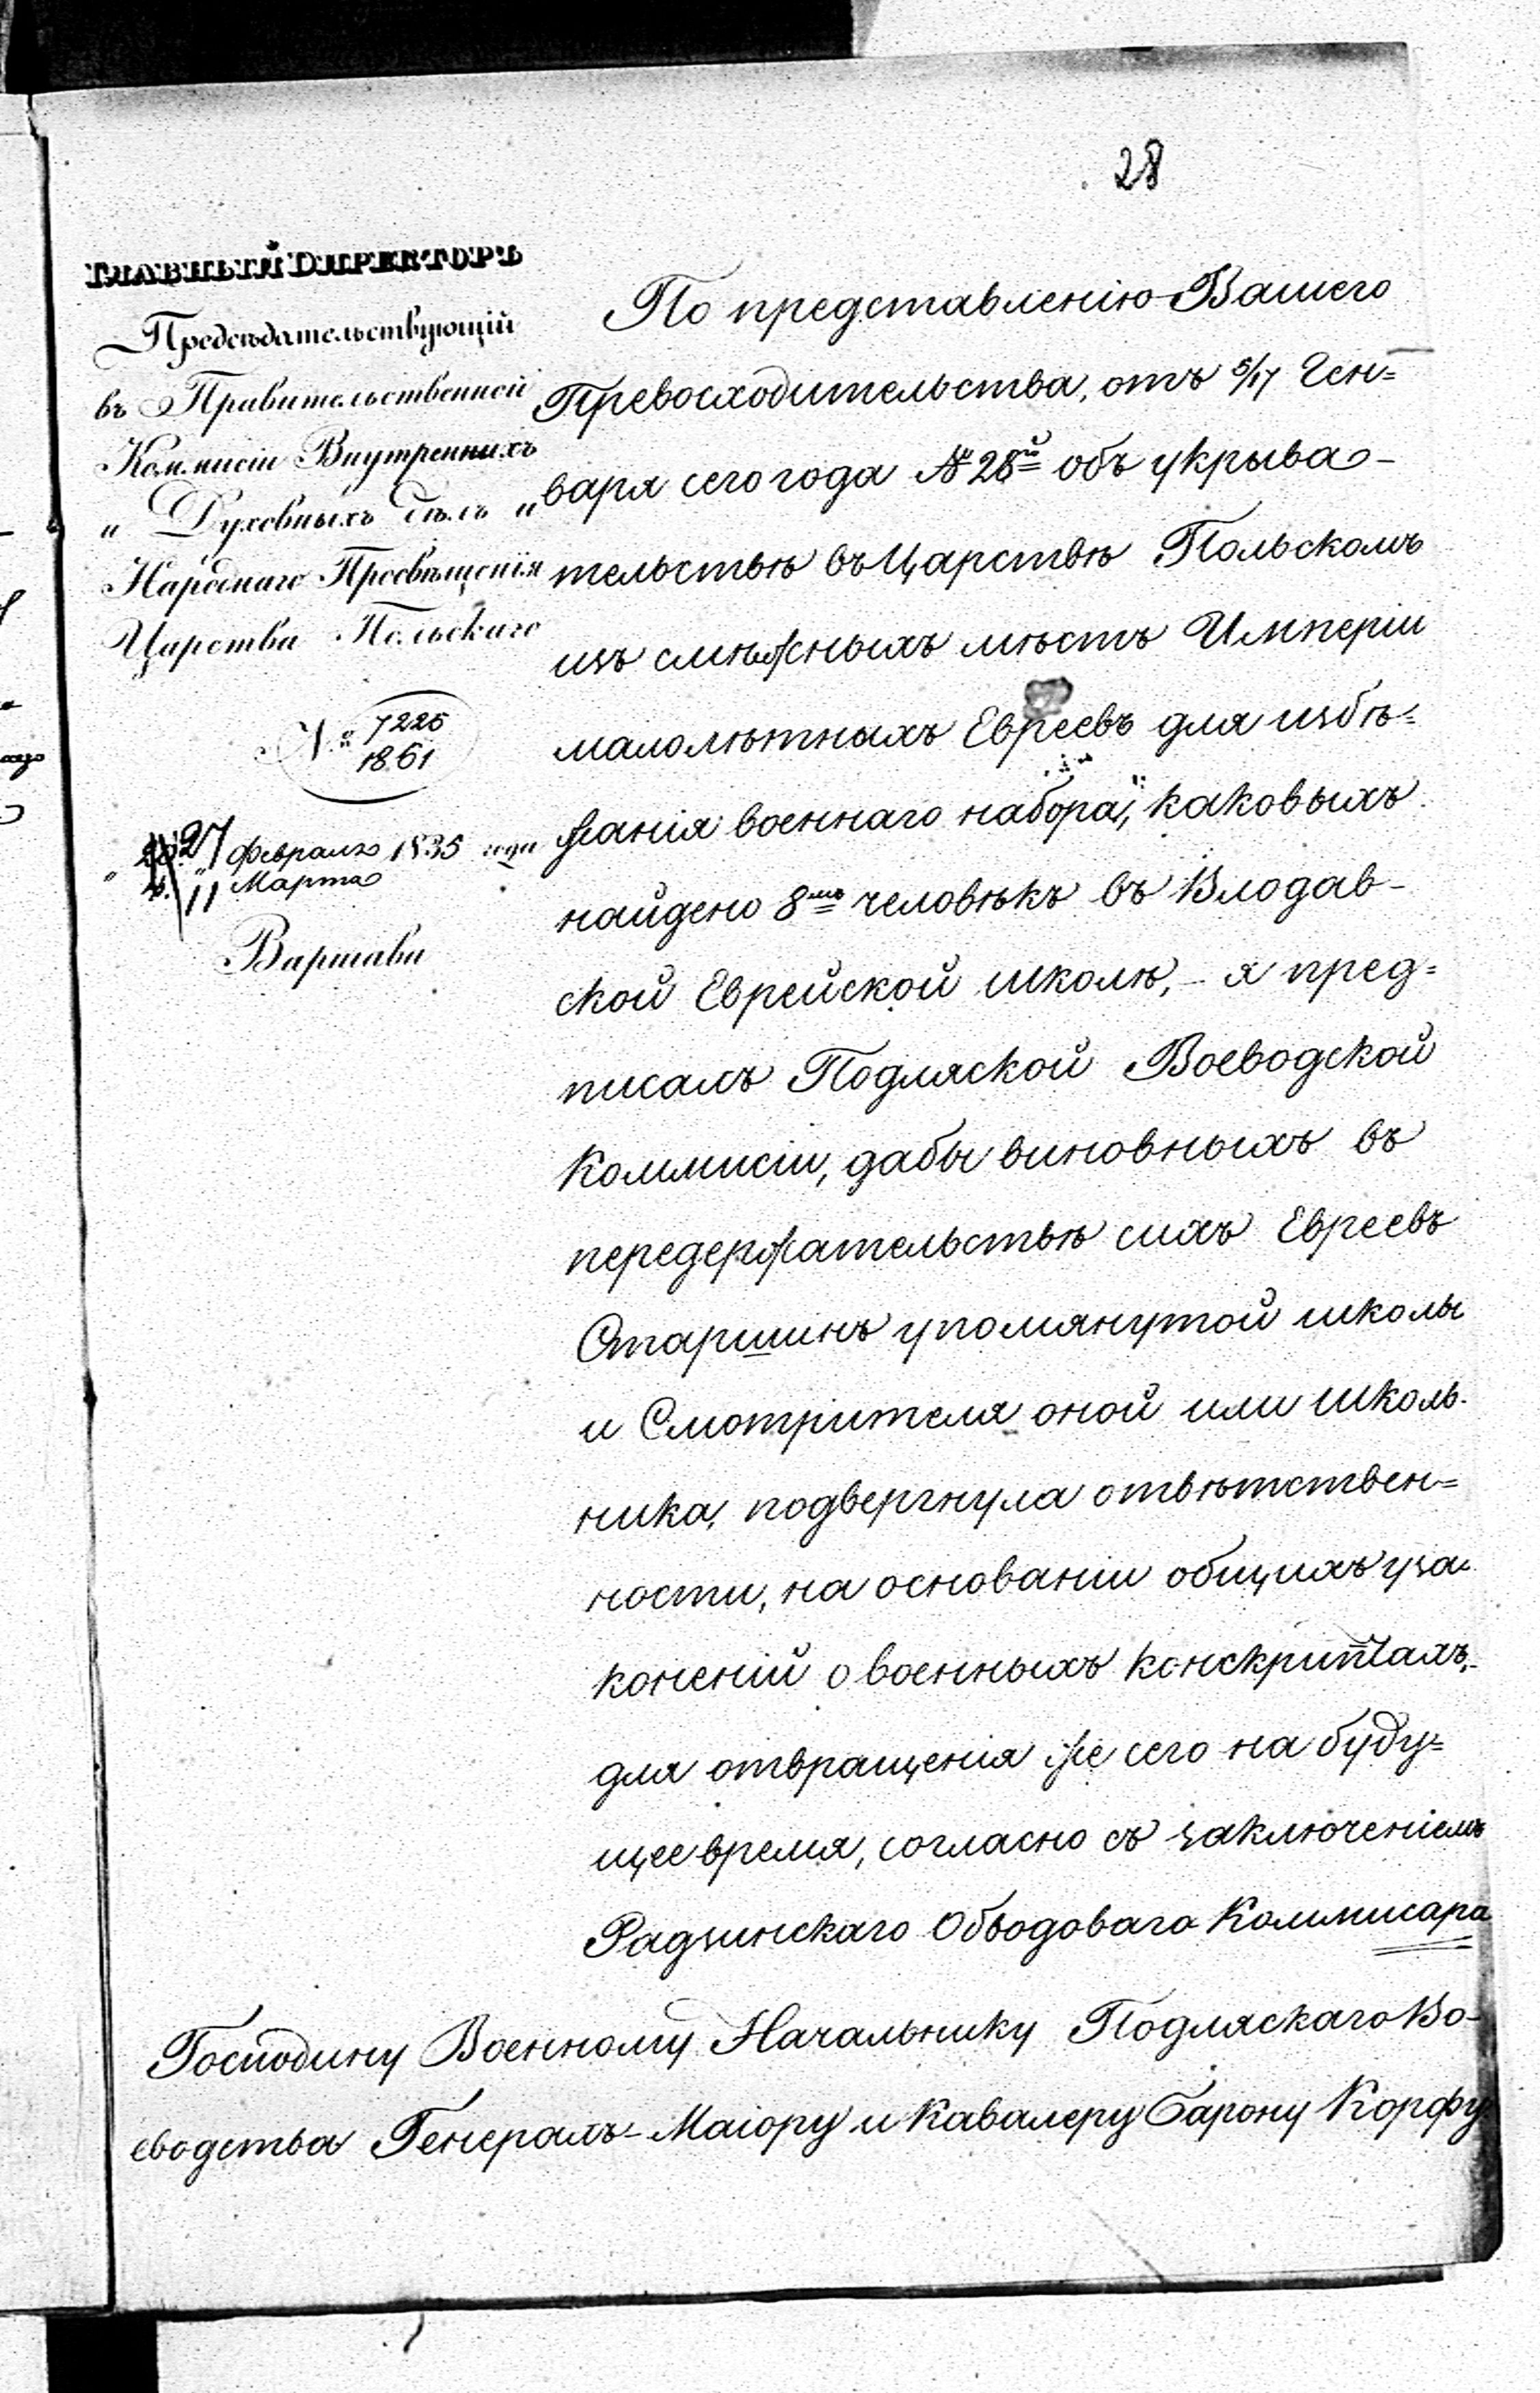 28
ГЛАВНЫЙ ДИРЕКТОРЪ
Предсѣдательствующій
въ Правительственной
Коммисіи Внутреннихъ
и Духовныхъ дѣлъ и
Народнаго Просвѣщенія
Царства Польскаго
№ 7225
1861
27 Февраля 1835 года
11 Марта
Варшава
По представленію Вашего
Превосходительства, отъ 5/17 Ген=
варя сего года № 28й объ укрыва-
тельствѣ въ Царствѣ Польскомъ
изъ смѣжныхъ мѣстъ Имперіи
малолѣтныхъ Евреевъ для избѣ=
жанія военнаго набора, каковыхъ
найдено 8мь человѣкъ въ Влодав-
ской Еврейской школѣ, - я пред=
писалъ Подляской Воеводской
Коммисіи, дабы виновныхъ въ
передержательствѣ сихъ Евреевъ
Старшинъ упомянутой школы
и Смотрителя оной или школь-
ника, подвергнула отвѣтствен=
ности, на основаніи общихъ уза-
коненій о военныхъ конскриптахъ,
для отвращенія же сего на буду=
щее время, согласно съ заключеніемъ
Радзинскаго Обводоваго Коммисара
Господину Военному Начальнику Подляскаго Во-
еводства Генералъ-Маіору и Кавалеру Барону Корфу